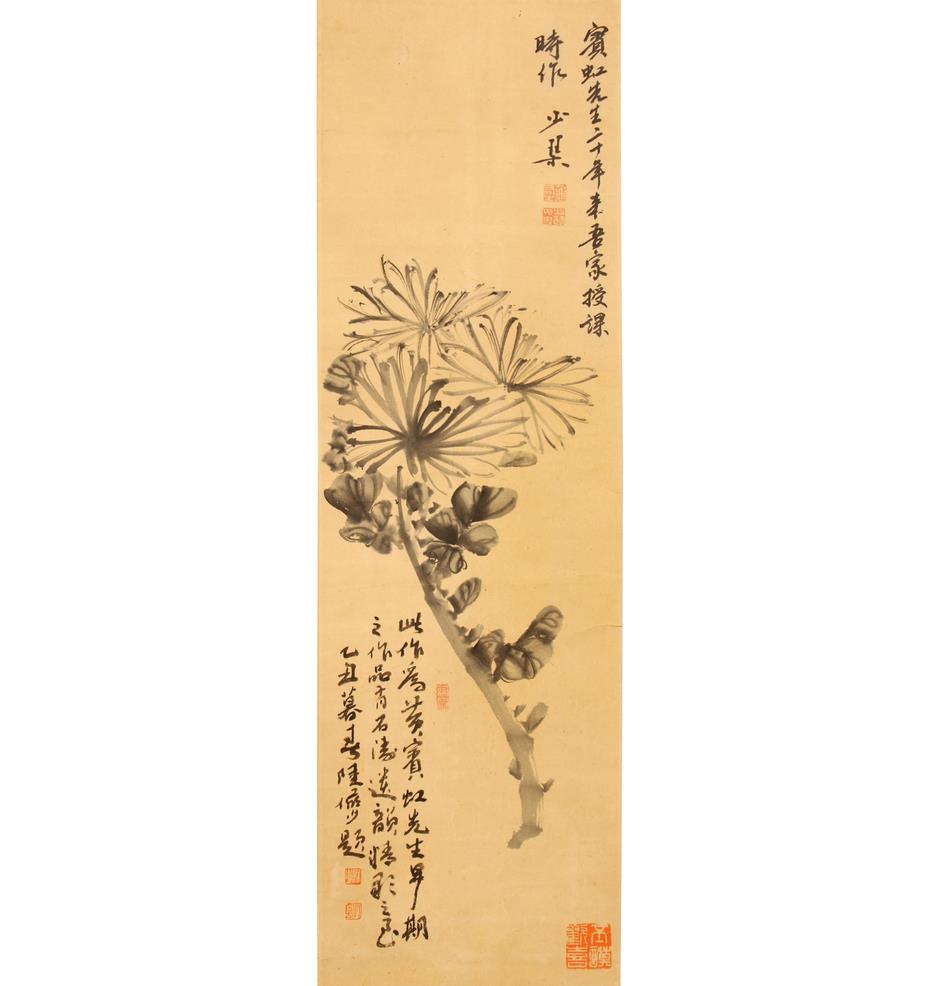 賓虹先生二十年来吾家授課
時作 少
此作為黃賓虹先生早期
之作品有石濤遺韻精
乙丑暮春陸儼少題